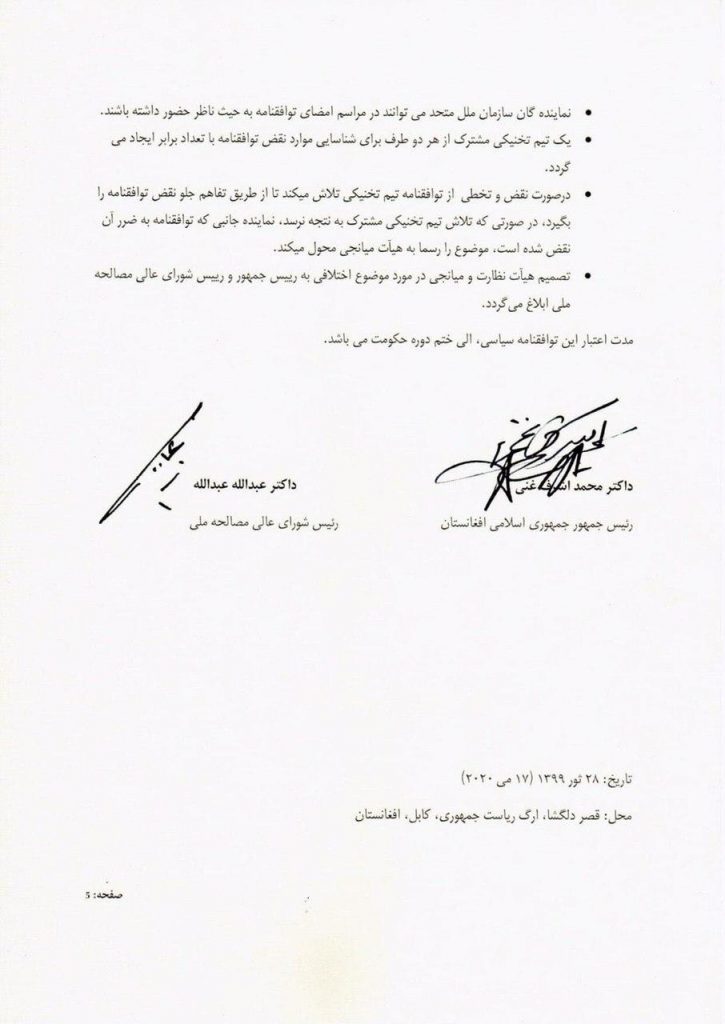 • نماینده گان سازمان ملل متحد می توانند در مراسم امضای توافقنامه به حیث ناظر حضور داشته باشند.
• یک تیم تخنیکی مشترک از هر دو طرف برای شناسایی موارد نقض توافقنامه با تعداد برابر ایجاد می
گردد.
• درصورت نقض و تخطی از توافقنامه تیم تخنیکی تلاش میکند تا از طریق تفاهم جلو نقض توافقنامه را
بگیرد، در صورتی که تلاش تیم تخنیکی مشترک به نتجه نرسد، نماینده جانبی که توافقنامه به ضرر آن
نقض شده است، موضوع را رسما به هیأت میانجی محول میکند.
• تصمیم هیأت نظارت و میانجی در مورد موضوع اختلافی به رییس جمهور و رییس شورای عالی مصالحه
ملی ابلاغ می‌گردد.
مدت اعتبار این توافقنامه سیاسی، الی ختم دوره حکومت می باشد.
داکتر محمد اشرف غنی
رئیس جمهور جمهوری اسلامی افغانستان
داکتر عبدالله عبدالله
رئیس شورای عالی مصالحه ملی
تاریخ: ۲۸ ثور ۱۳۹۹ (۱۷ می ۲۰۲۰)
محل: قصر دلگشا، ارگ ریاست جمهوری، کابل، افغانستان
صفحه: 5